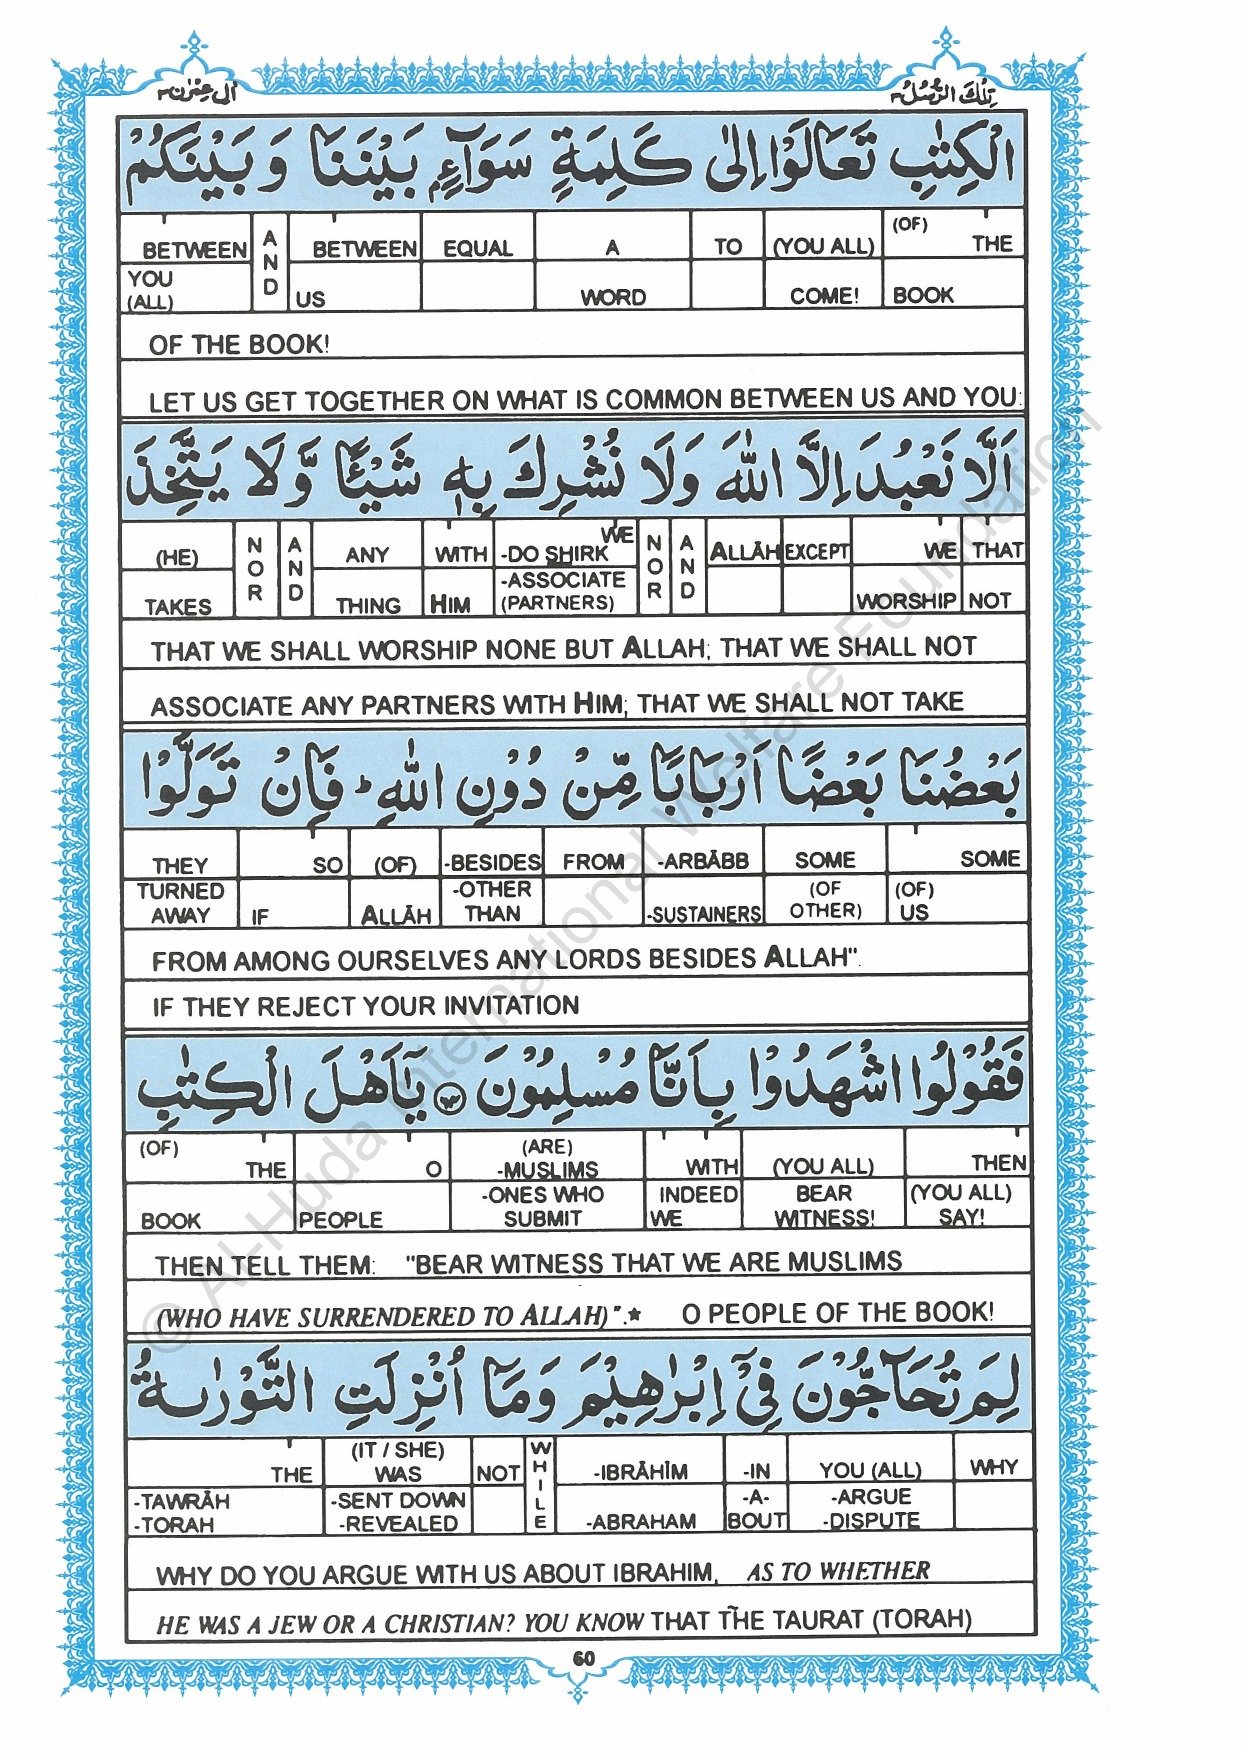 تِلْكَ الرُّسُلُ ٣ اٰلِ عِمْرٰن ٣
الْكِتٰبِ تَعَالَوْا اِلٰى كَلِمَةٍ سَوَآءٍۭ بَيْنَنَا وَ بَيْنَكُمْ
BETWEEN AND BETWEEN EQUAL A TO (YOU ALL) (OF) THE
YOU (ALL) US WORD COME! BOOK
OF THE BOOK!
LET US GET TOGETHER ON WHAT IS COMMON BETWEEN US AND YOU:
اَلَّا نَعْبُدَ اِلَّا اللّٰهَ وَلَا نُشْرِكَ بِهٖ شَيْـًٔا وَّلَا يَتَّخِذَ
(HE) NOR AND ANY WITH WE -DO SHIRK NOR AND ALLĀH EXCEPT WE THAT
TAKES THING HIM -ASSOCIATE (PARTNERS) WORSHIP NOT
THAT WE SHALL WORSHIP NONE BUT ALLAH; THAT WE SHALL NOT
ASSOCIATE ANY PARTNERS WITH HIM; THAT WE SHALL NOT TAKE
بَعْضُنَا بَعْضًا اَرْبَابًا مِّنْ دُوْنِ اللّٰهِ ؕ فَاِنْ تَوَلَّوْا
THEY SO (OF) -BESIDES FROM -ARBĀBB SOME SOME
TURNED AWAY IF ALLĀH -OTHER THAN -SUSTAINERS (OF OTHER) (OF) US
FROM AMONG OURSELVES ANY LORDS BESIDES ALLAH".
IF THEY REJECT YOUR INVITATION
فَقُوْلُوا اشْهَدُوْا بِاَنَّا مُسْلِمُوْنَ ۝٦٤ يٰۤاَهْلَ الْكِتٰبِ
(OF) THE O (ARE) -MUSLIMS WITH (YOU ALL) THEN
BOOK PEOPLE -ONES WHO SUBMIT INDEED WE BEAR WITNESS! (YOU ALL) SAY!
THEN TELL THEM: "BEAR WITNESS THAT WE ARE MUSLIMS
(WHO HAVE SURRENDERED TO ALLAH)".★ O PEOPLE OF THE BOOK!
لِمَ تُحَآجُّوْنَ فِيْۤ اِبْرٰهِيْمَ وَمَاۤ اُنْزِلَتِ التَّوْرٰىةُ
THE (IT / SHE) WAS NOT WHILE -IBRĀHĪM -IN YOU (ALL) WHY
-TAWRĀH -TORAH -SENT DOWN -REVEALED -ABRAHAM -A-BOUT -ARGUE -DISPUTE
WHY DO YOU ARGUE WITH US ABOUT IBRAHIM, AS TO WHETHER
HE WAS A JEW OR A CHRISTIAN? YOU KNOW THAT THE TAURAT (TORAH)
60
© Al-Huda International Welfare Foundation